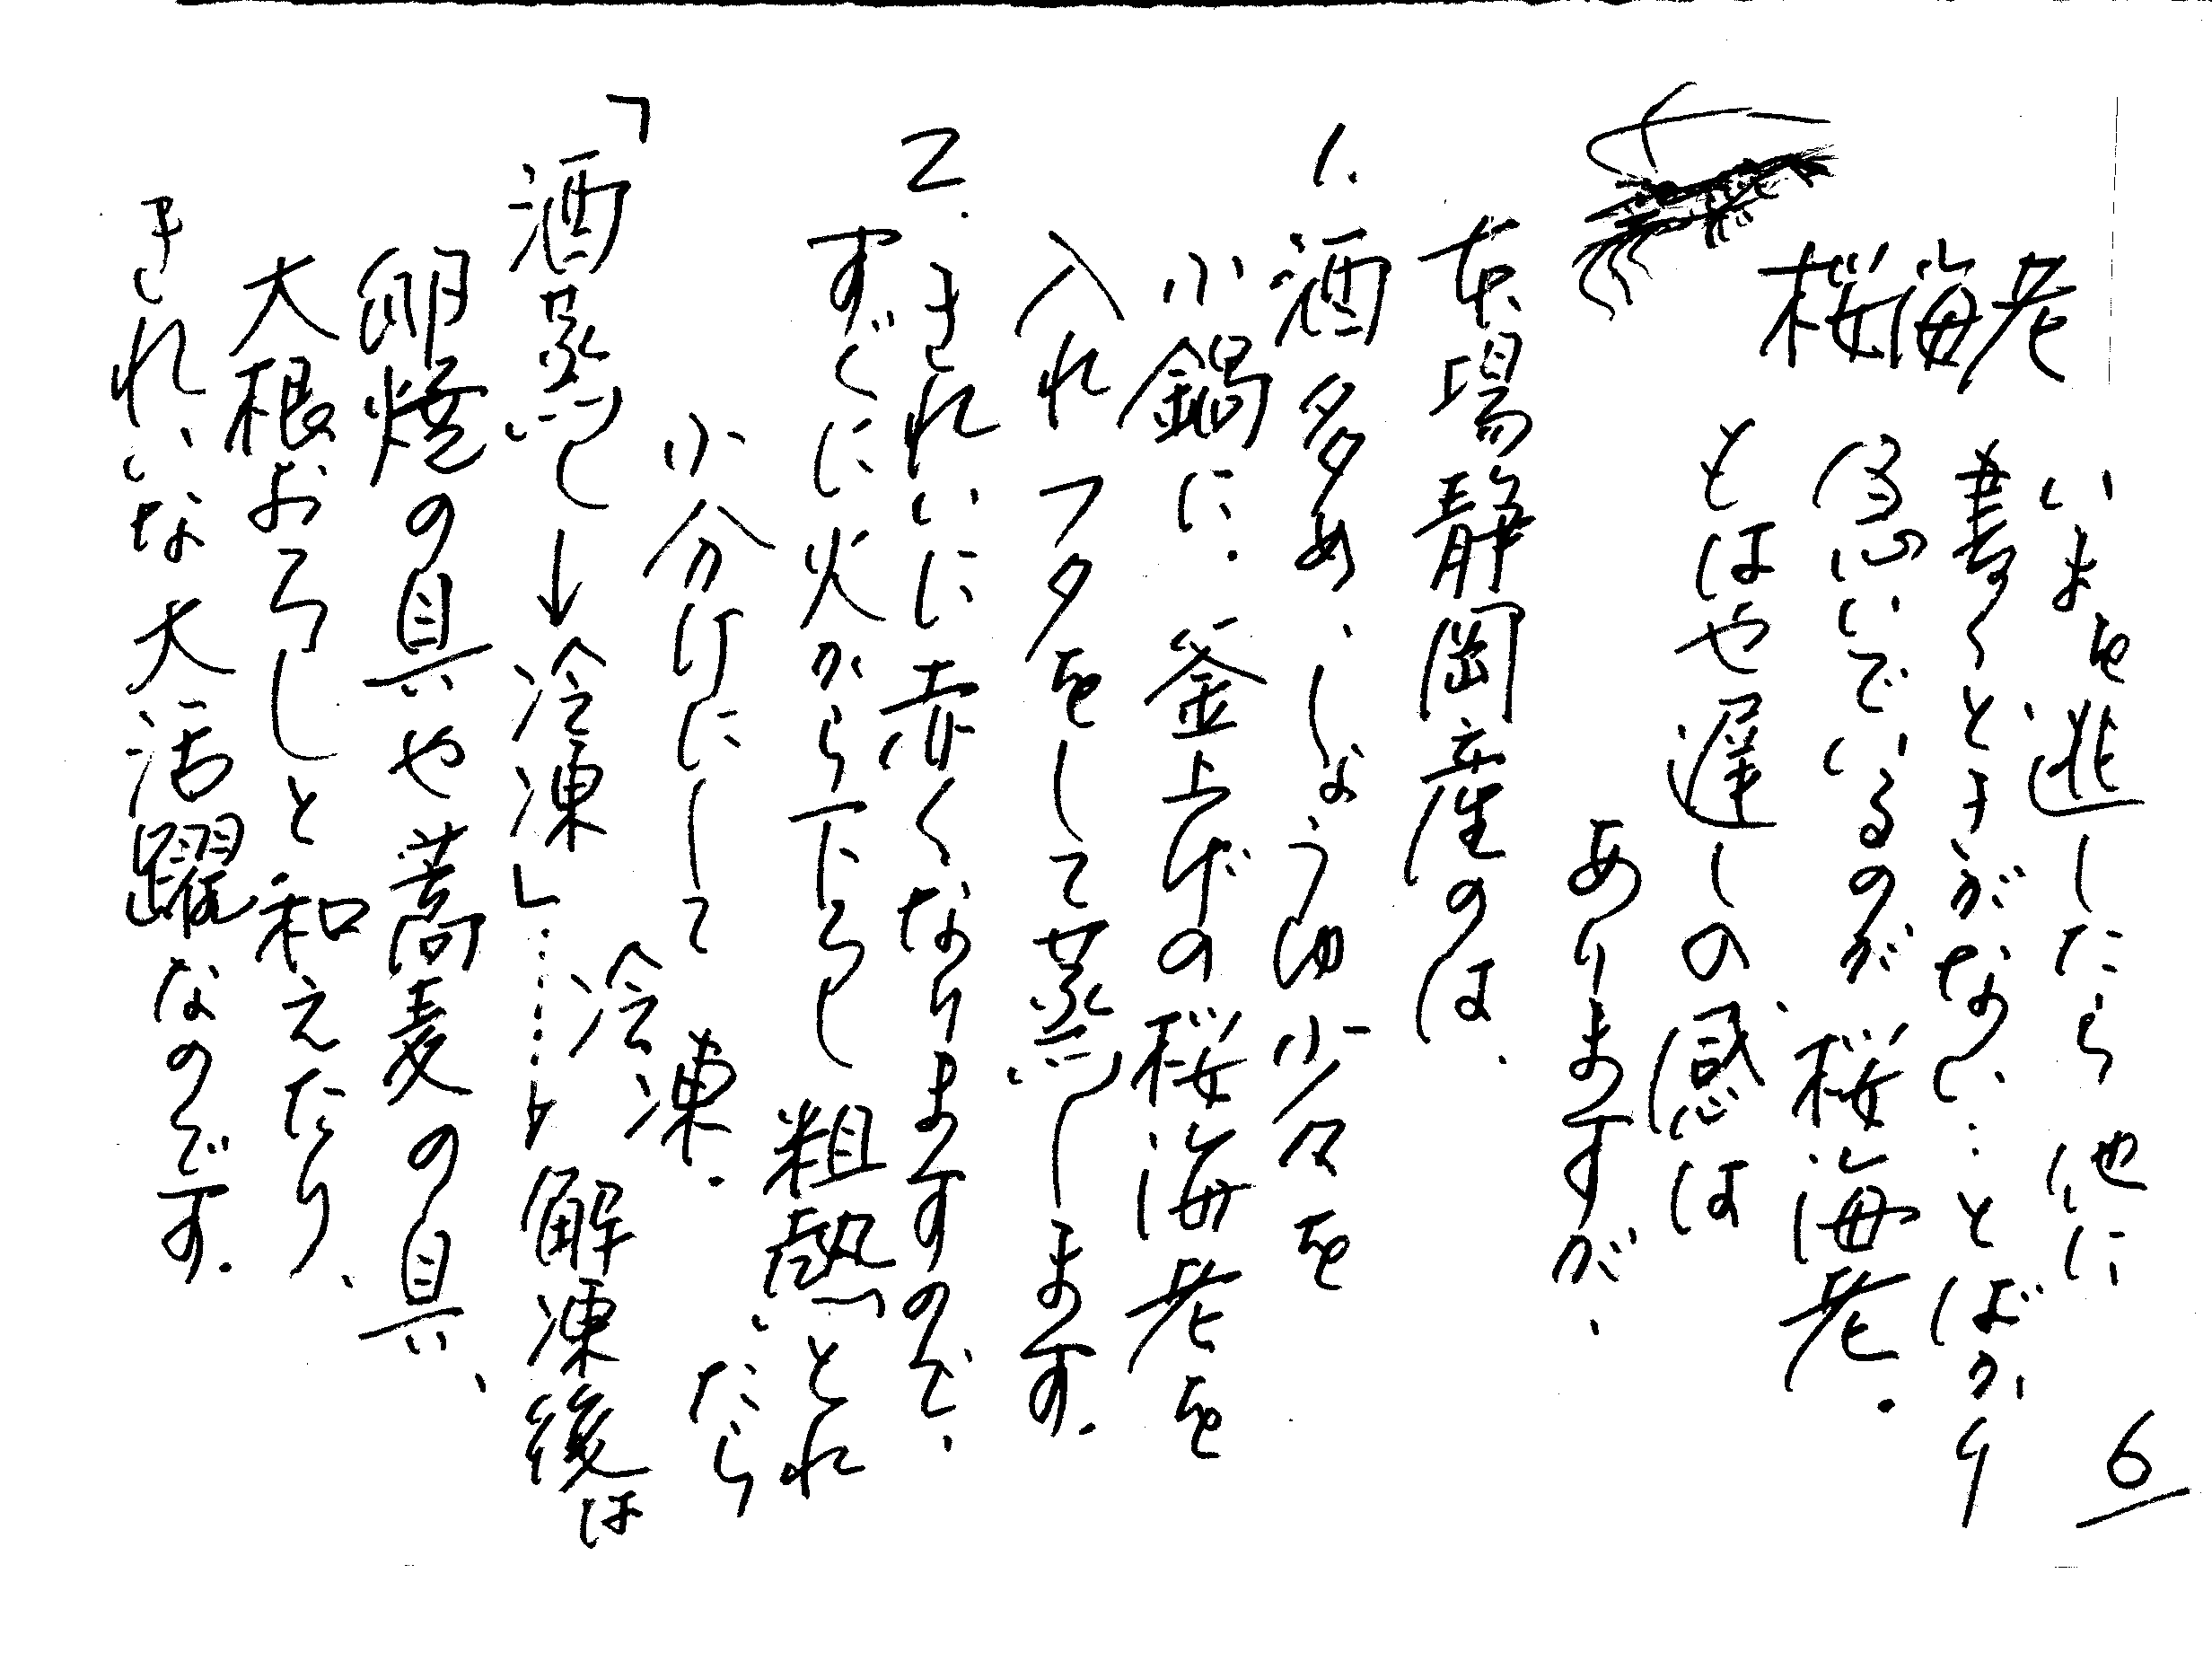 6
桜海老
いまを逃したら 他に
書くときがなく…とばかり
急いでいるのが、桜海老.
もはや遅しの感は
ありますが、
本場静岡産のは、
1. 酒多め、しょうゆ少々を
小鍋に、釜上げの桜海老を
入れフタをして蒸します.
2. きれいに赤くなりますので、
すぐに火から下ろし 粗熱とれたら
小分けにして冷凍.
「酒蒸し→冷凍」……→解凍後は
卵焼の具や蕎麦の具、
大根おろしと和えたり、
きれいな大活躍なのです.